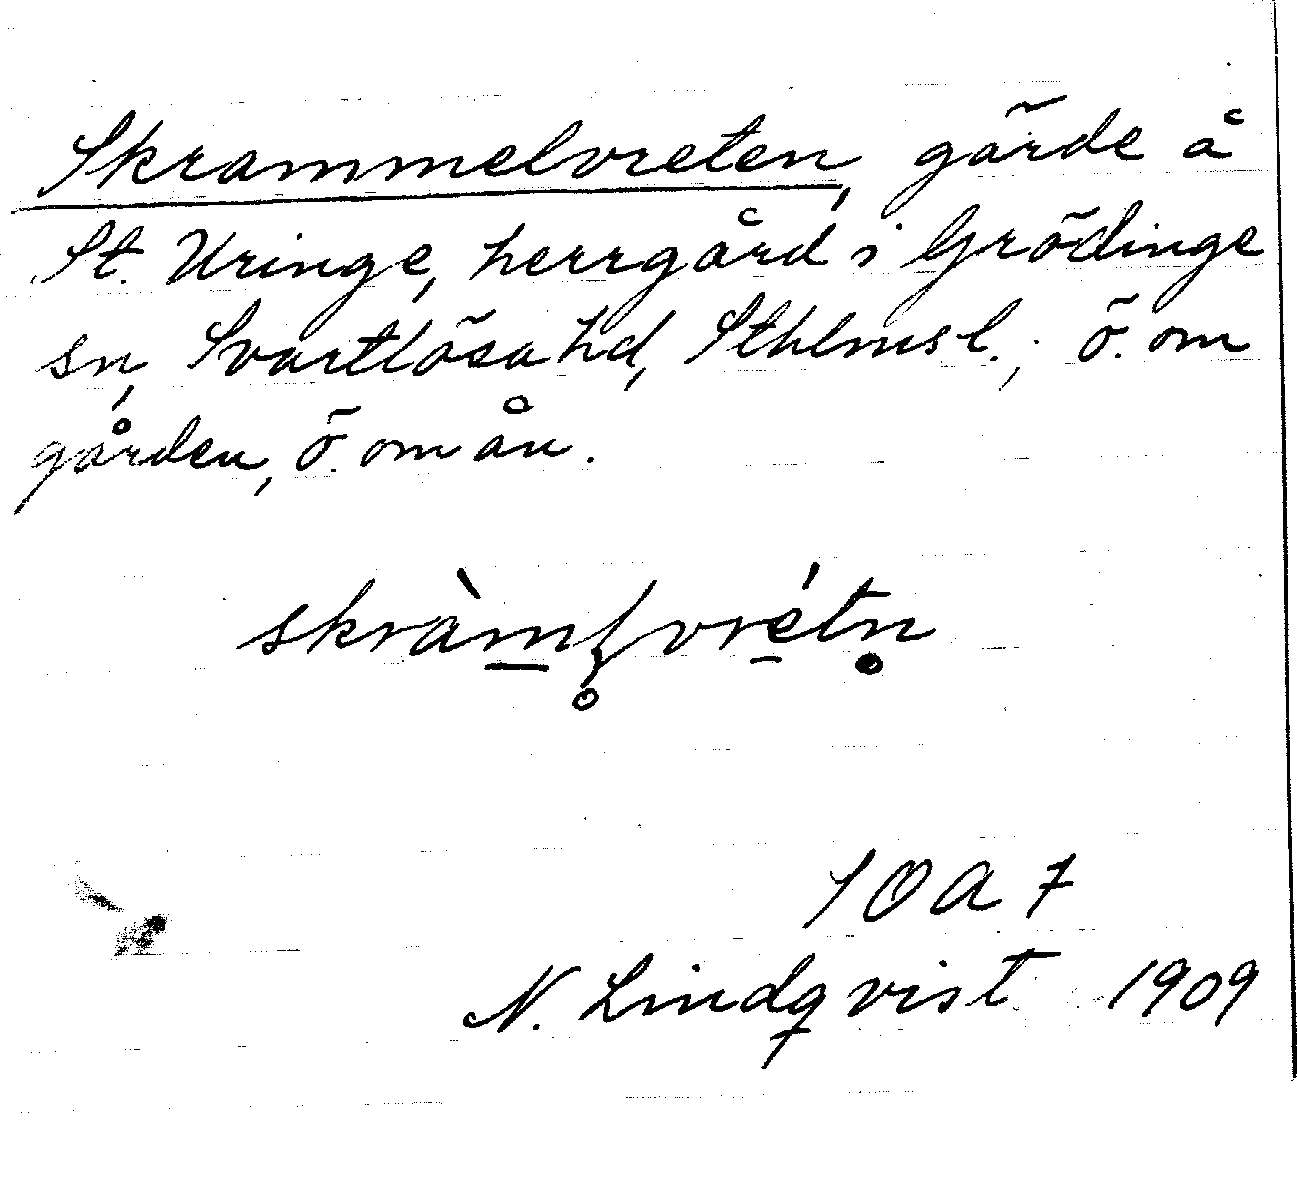 Skrammelvreten, gärde å
St. Uringe, herrgård i Grödinge
sn, Svartlösa hd, Sthlmsl.; ö. om
gården, ö. om ån.
skràm̲l̥vré̲tn̥
SOA 7
N. Lindqvist 1909